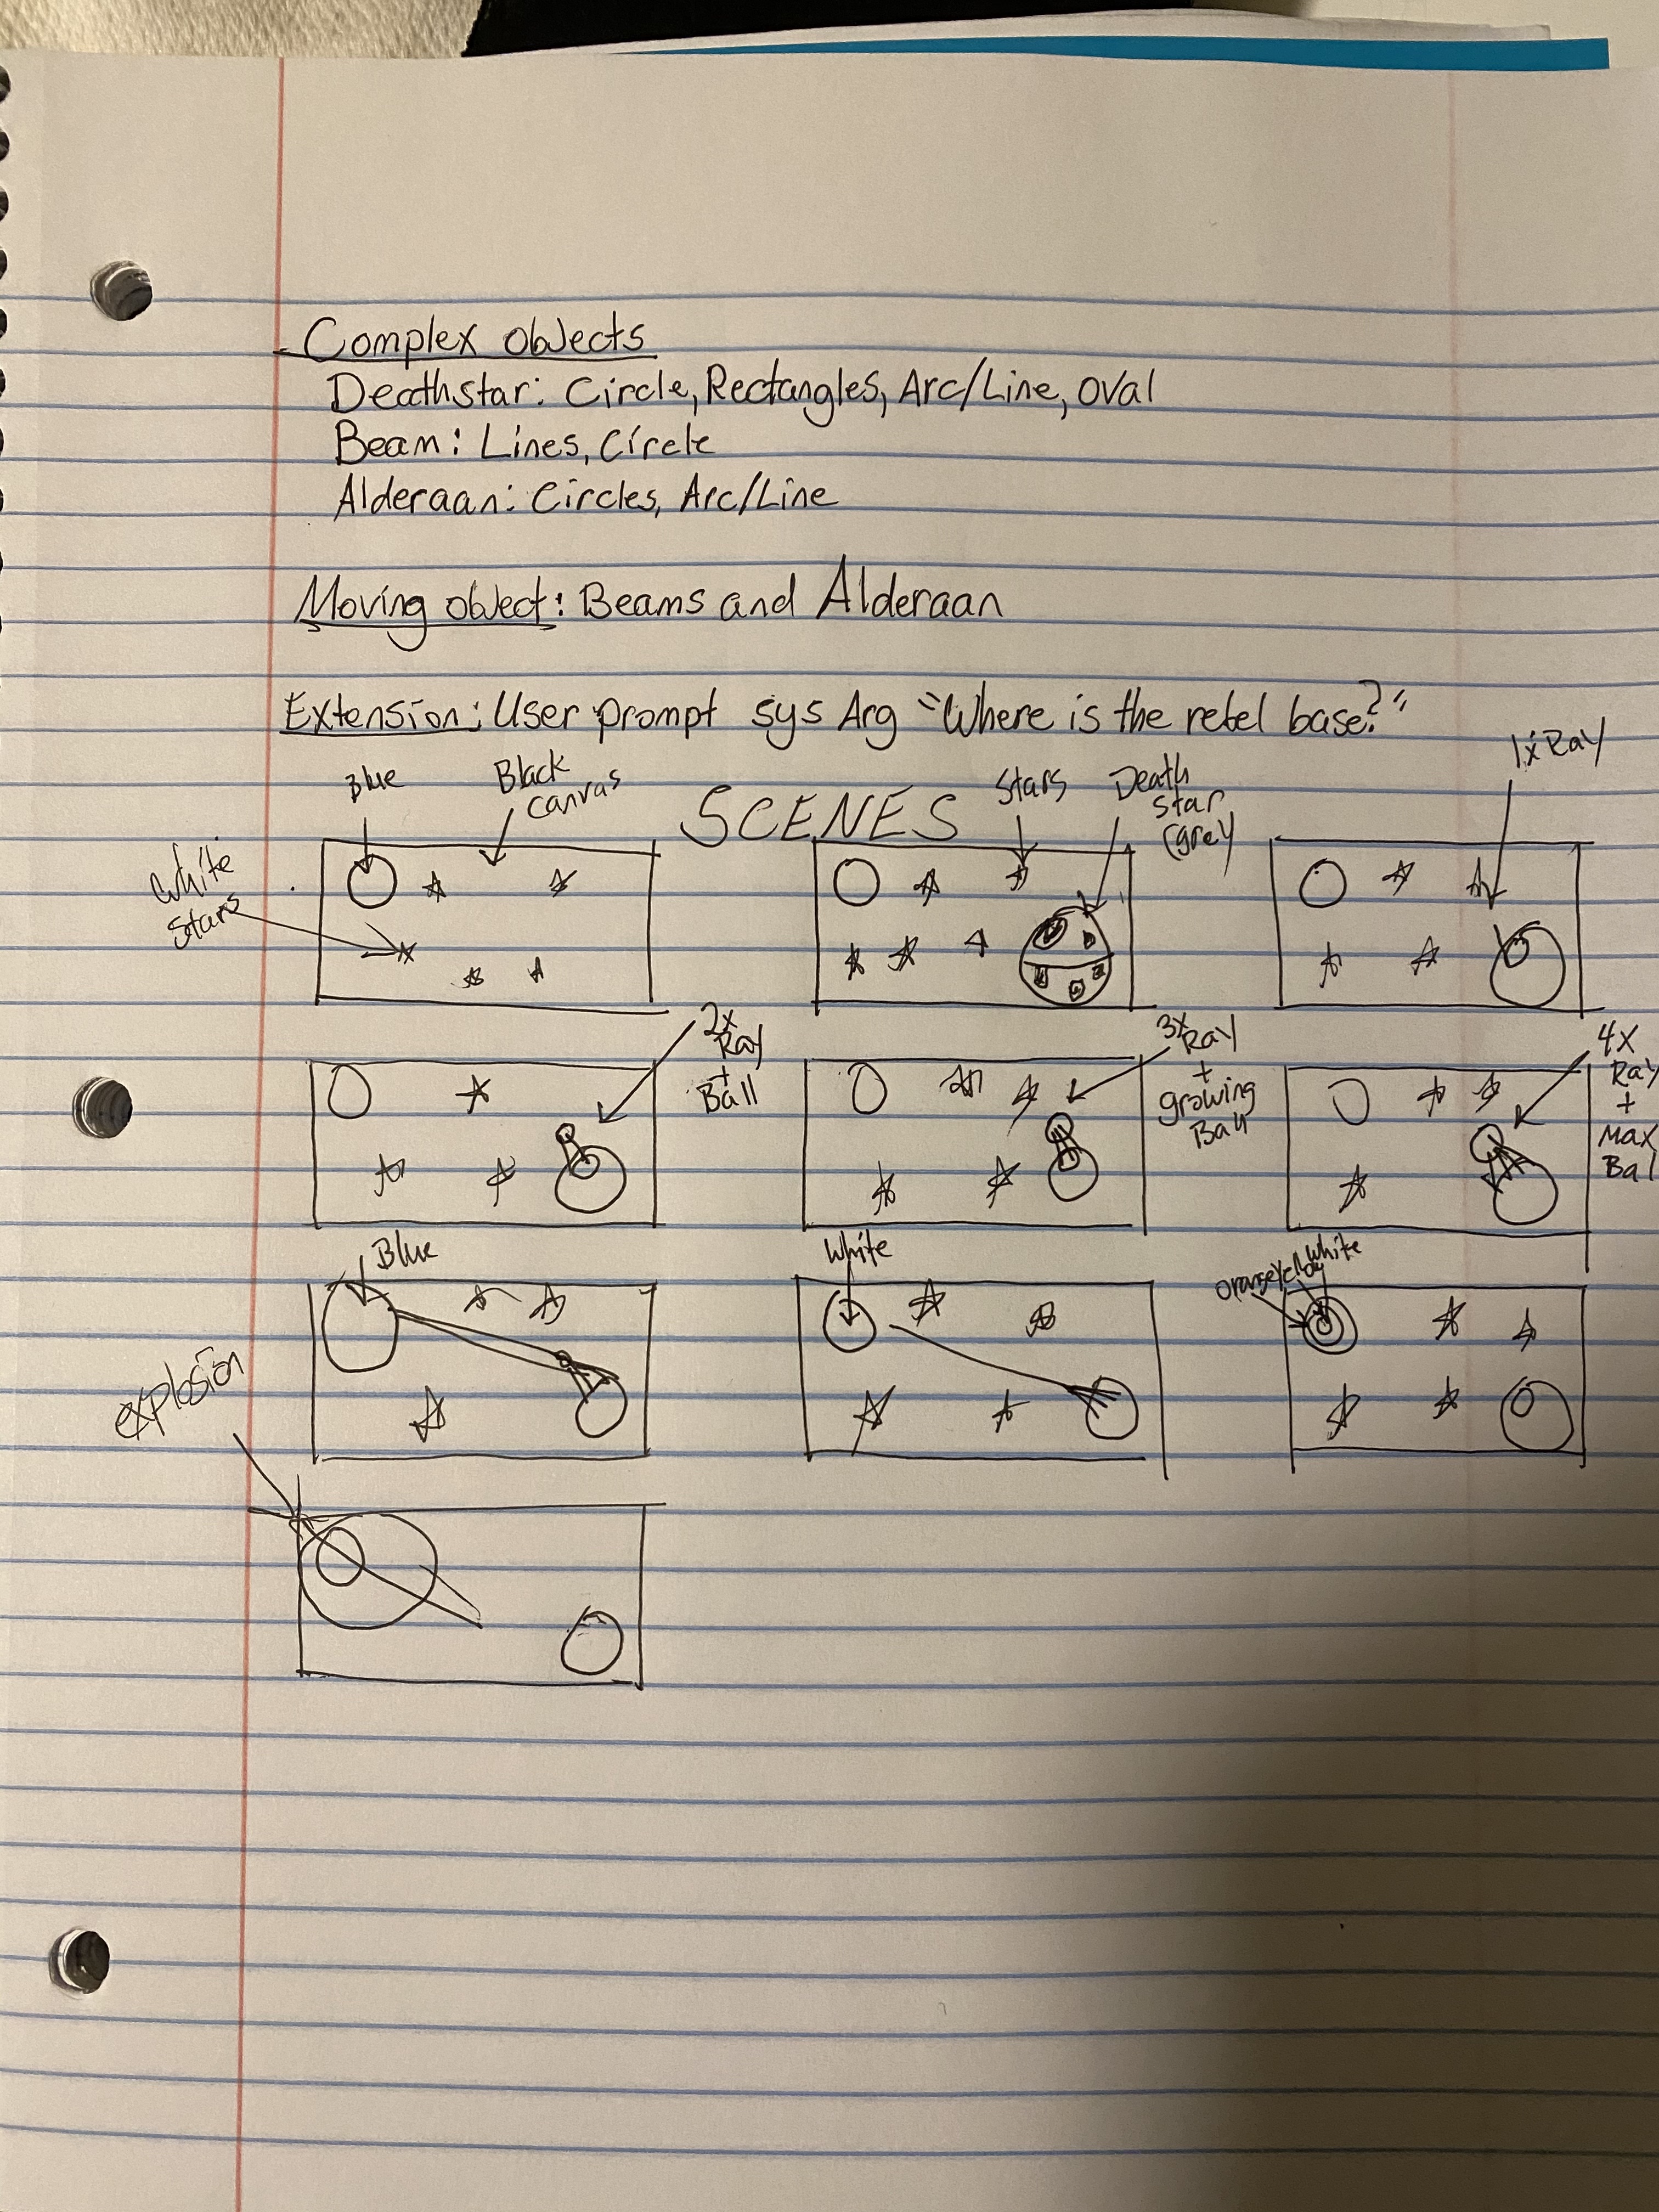 Complex objects
Deathstar: Circle, Rectangles, Arc/Line, oval
Beam: Lines, Circle
Alderaan: Circles, Arc/Line
Moving object: Beams and Alderaan
Extension: User prompt sys Arg "Where is the rebel base?"
SCENES
Blue
Black
canvas
White
Stars
Stars
Death
Star
(grey
1x Ray
2x
Ray
+
Ball
3x
Ray
+
growing
Ball
4x
Ray
+
Max
Bal
Blue
White
orange
Yellow
White
explosion